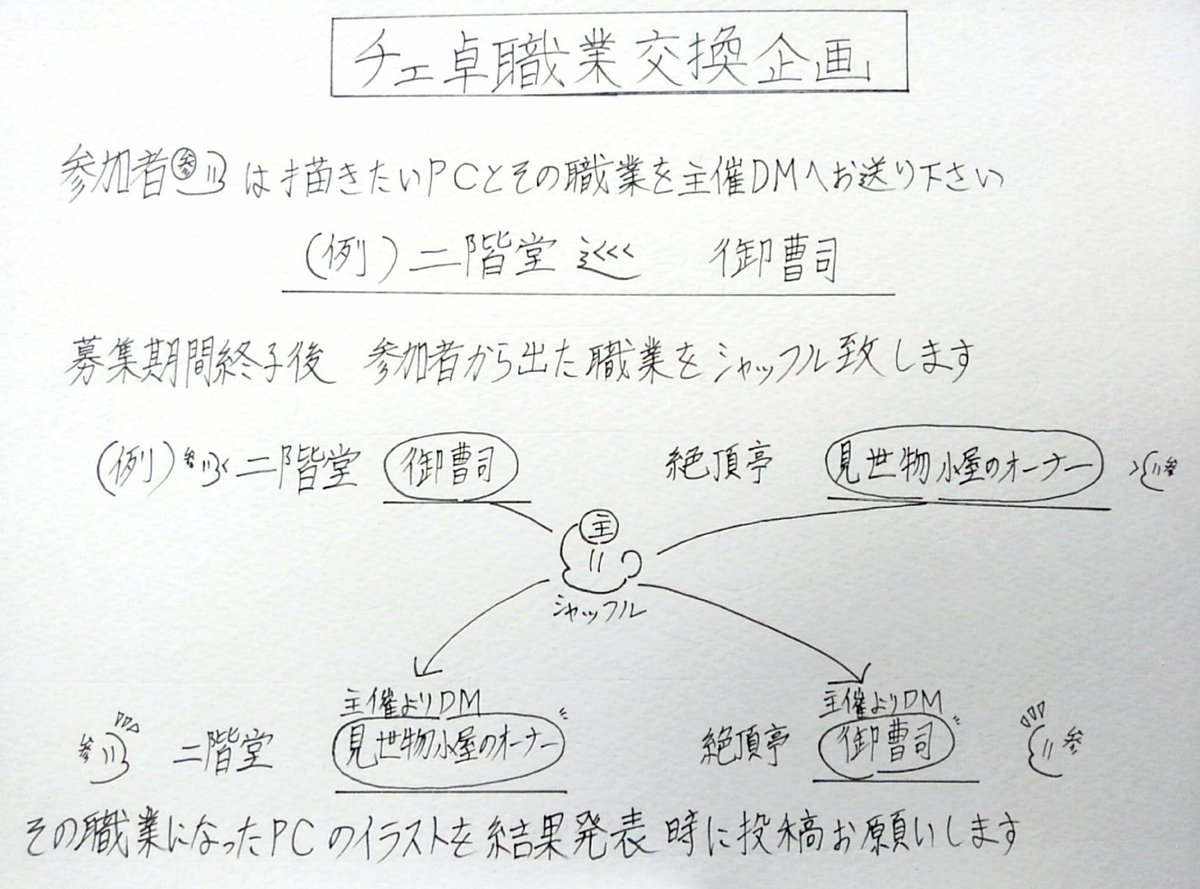 チェ卓職業交換企画
参加者参は描きたいPCとその職業を主催DMへお送り下さい
(例)二階堂巡 御曹司
募集期間終了後 参加者から出た職業をシャッフル致します
(例)参 二階堂 御曹司 絶頂亭 見世物小屋のオーナー 参
主
シャッフル
主催よりDM 主催よりDM
参 二階堂 見世物小屋のオーナー 絶頂亭 御曹司 参
その職業になったPCのイラストを結果発表時に投稿お願いします